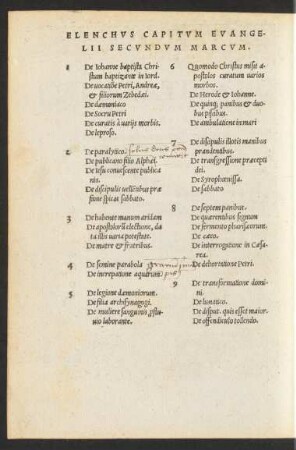 ELENCHVS CAPITVM EVANGE-
LII SECVNDVM MARCVM.
1 De Iohanne baptista Chri
stum baptizante in Iord.
De uocatiõe Petri, Andreæ,
& filiorum Zebedei.
De dæmoniaco
De Socru Petri
De curatis à uarijs morbis.
De leproso.
2 De paralytico.
De publicano filio Alphei.
De Iesu conuiuente publica
nis.
De discipulis uellentibus præ
sione spicas sabbato.
3 De habente manum aridam
De apostolorũ electione, da
ta illis uaria potestate.
De matre & fratribus.
4 De semine parabola
De increpatione aquarum
5 De legione dæmoniorum.
De filia archisynagogi.
De muliere sanguinis ꝓflu
uio laborante.
6 Quomodo Christus misit a-
postolos curatum uarios
morbos.
De Herode & Iohanne.
De quinq; panibus & duo
bus piscibus.
De ambulatione in mari
7 De discipulis illotis manibus
prandentibus.
De transgressione præcepti
dei.
De Syrophœnissa.
De sabbato
8 De septem panibus.
De quærentibus signum
De fermento pharisæorum.
De cæco.
De interrogatione in Cæsa-
rea.
De dehortatione Petri.
9 De transformatione domi-
ni.
De lunatico.
De disput. quis esset maior.
De offendiculo tollendo.